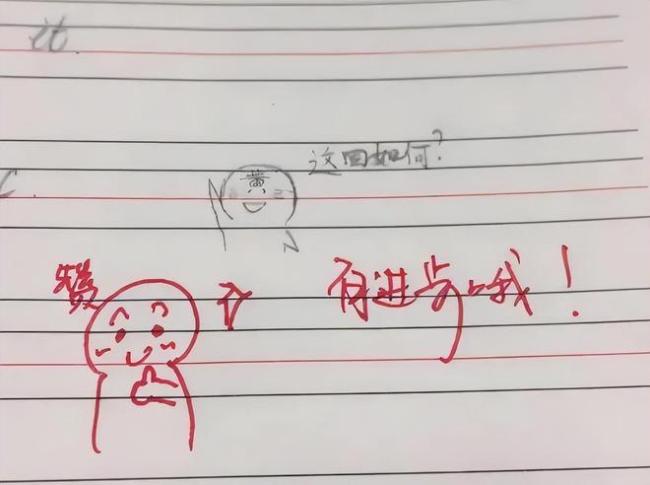 it.
这回如何?
黄
赞
有进步哦!